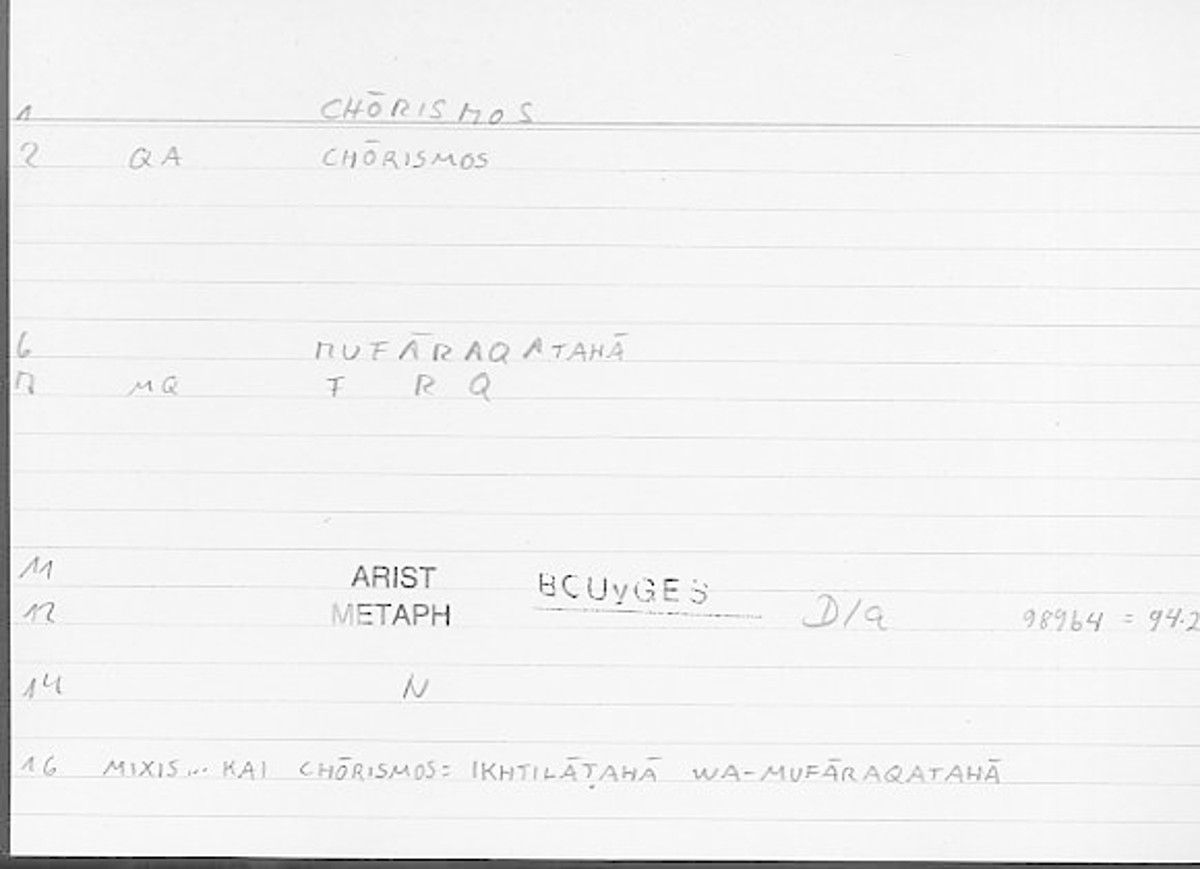 1 CHŌRISMOS
2 QA CHŌRISMOS
6 MUFĀRAQATAHĀ
7 MQ F R Q
11 ARIST BOUyGES
12 METAPH D/a 989b4 = 94.2
14 N
16 MIXIS... KAI CHŌRISMOS: IKHTILĀṬAHĀ WA-MUFĀRAQATAHĀ